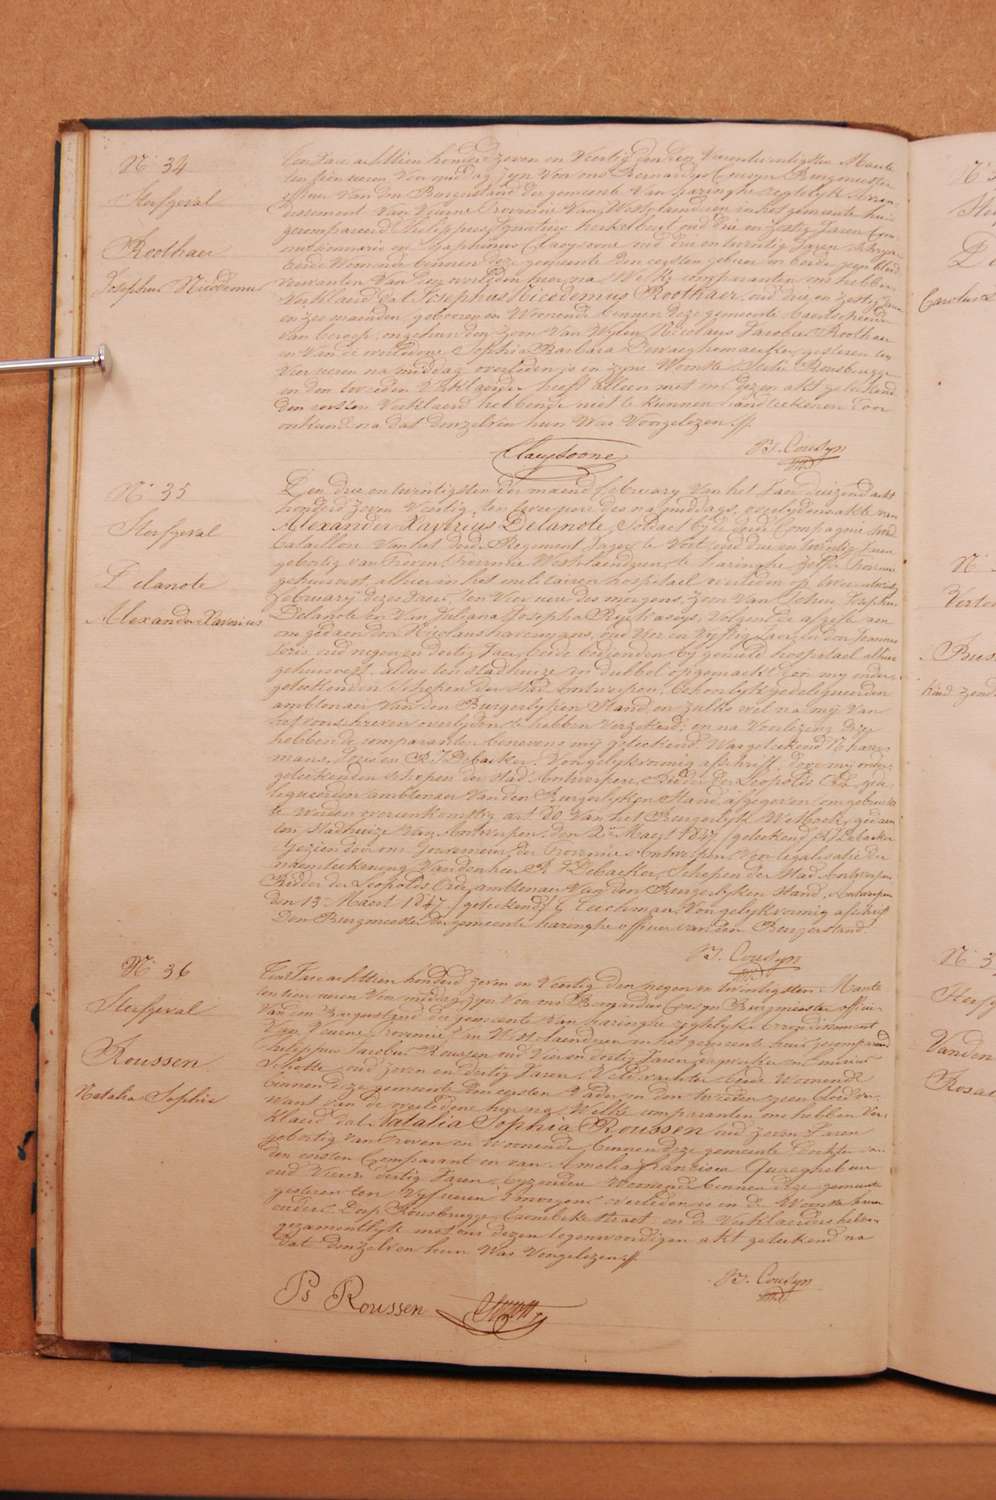 N.º 34
Sterfgeval
Roothaer
Josephus Nicodemus
Ten Jare achttien honderd zeven en Veertig den Maarte
ten tien uren Voor middag zyn Voor ons Bernardus Cousyn Burgmeester
officier Van den Burgerstand der gemeente Van haringhe regtelyk Arron-
dissement Van Veurne Provincie Van Westvlaenderen in het gemeente huis
gecompareerd Philippus Ignatius oud drie en zestig Jaren
en Seraphinus Claeysoone oud drie en twintig Jaren
beide Woonende binnen deze gemeente den eersten gebuer en
Van den overleden hier na Welke comparanten ons hebben
Verklaerd dat Josephus Nicodemus Roothaer oud drie en zestig Jaren
en zes maenden, geboren en Woonende binnen deze gemeente
Van beroep, ongehuwden zoon Van Wylen Nicolaus Jacobus Roothaer
en Van de overledene Sophia Barbara gisteren ten
Vier uren na middag overleden is in zyne Woonste Rousbrugge
en den tweeden Verklaerder heeft alleen met ons dezen akt geteekend
den eersten Verklaerd hebbende niet te kunnen handteekenen Door
onkunde na dat denzelven hun Was Voorgelezen ff.
Claeysoone
B. Cousyn
N.º 35
Sterfgeval
Delanote
Alexander Xaverius
Den drie en twintigsten der maend february Van het Jaer duizend acht
honderd zeven Veertig, ten twee ure des na middags, overlydensakte van
Alexander Xaverius Delanote, Soldaet by de derde Compagnie
bataillon Van het derde Regiment Jager te Voet oud drie en twintig Jaren
gebortig van Proven Provincie Westvlaenderen, te haringhe zelfde Provincie
gehuisvest, alhier in het militairen hospitael overleden op
february dezer Jaer, ten Vier ure des morgens, zoon Van Joseph
Delanote en Van Juliana Josepha Ryckasys, Volgens de afgifte aen
ons gedaen door Nicolaus haremans, oud Vier en Vyftig Jaer, en door Joannes
Joris oud negen en dertig Jaer, beide bedienden by gemeld hospitael alhier
gehuisvest. Aldus ten stadhuize in dubbel opgemaekt door my onder-
geteekenden Schepen der Stad Antwerpen, behoorlyk gedelegueerden
ambtenaer Van den Burgerlyken Stand, en zulks wel na my Van
het voorschreven overlyden te hebben verzekerd, en na Voorlezing dezer
hebben de comparanten benevens my geteekend. Was geteekend N. hare-
mans, Joris en R. J. Debacker. Voor gelykvormig afschrift, door my onder-
geteekenden Schepen der Stad Antwerpen, Ridder der Leopolds Orde, gede-
legueerden ambtenaer Van den Burgerlyken Stand, afgegeven om gebruikt
te worden overeenkomstig art. 80 Van het Burgerlyk Wetboek, gedaen
ten Stadhuize Van Antwerpen, den 2 Maert 1847 (geteekend) R. J. Debacker
Gezien door ons Gouverneur der Provincie Antwerpen, Voor legalisatie der
naemteekening Van den heer R. J. Debacker, Schepen der Stad Antwerpen
Ridder der Leopolds Orde, ambtenaer Van den Burgerlyken Stand, Antwerpen
den 13 Maert 1847 (geteekend) Teichman. Voor gelykvormig afschrift
Den Burgmeester der gemeente haringhe officier van den Burgerstand.
B. Cousyn
N.º 36
Sterfgeval
Roussen
Natalia Sophia
Ten Jare achttien honderd zeven en Veertig den negen en twintigsten Maarte
ten tien uren Voor middag zyn Voor ons Bernardus Cousyn Burgmeester officier
Van den Burgerstand der gemeente Van haringhe regtelyk Arrondissement
Van Veurne Provincie Van West Vlaenderen in het gemeente huis gecompareerd
Philippus Jacobus Roussen oud Vier en dertig Jaren
oud zeven en dertig Jaren, Veldwachter beide Woonende
binnen deze gemeente den eersten Vader en den tweeden geen bloedver-
want van de overledene hier na Welke comparanten ons hebben Ver-
klaerd dat Natalia Sophia Roussen oud zeven Jaren
gebortig Van Proven en Woonende binnen deze gemeente dochter van
den eersten Comparant en van Amelia francisca Quaeghebeur
oud Vier en dertig Jaren, byzondere Woonende binnen deze gemeente
gisteren ten Vyf uren 's morgens overleden is in de Woonste harer
ouders Dorp Rousbrugge Crombeke straet, en de Verklaerders hebben
gezamentlyk met ons dezen tegenwoordigen akt geteekend na
dat denzelven hun Was Voorgelezen ff.
B. Cousyn
Ps Roussen
N.º
Carolus
N.º
Kind zond
N.º 3
Vanden